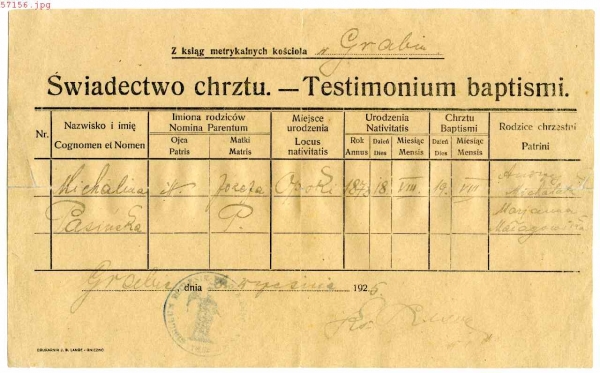 57156.jpg
Z ksiąg metrykalnych kościoła w Grabiu
Świadectwo chrztu. — Testimonium baptismi.
Nr.
Nazwisko i imię
Cognomen et Nomen
Imiona rodziców
Nomina Parentum
Ojca
Patris
Matki
Matris
Miejsce
urodzenia
Locus
nativitatis
Urodzenia
Nativitatis
Rok
Annus
Dzień
Dies
Miesiąc
Mensis
Chrztu
Baptismi
Dzień
Dies
Miesiąc
Mensis
Rodzice chrzestni
Patrini
Michalina N. Józefa 18 VIII. 19. VIII
Pasińska P. Marjanna
stycznia 1926
DRUKARNIA J. B. LANGE - GNIEZNO